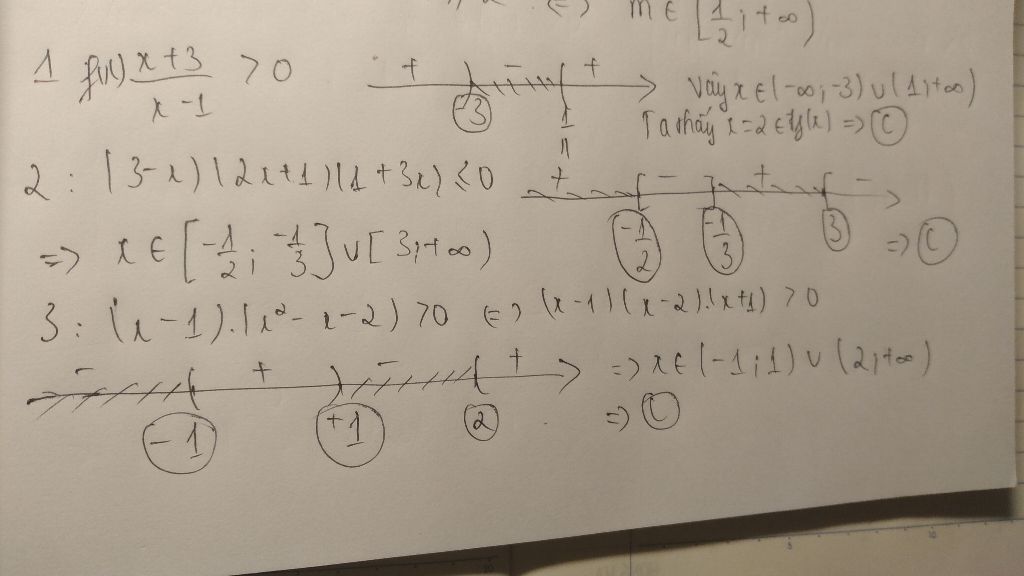 (=) m ∈ [1/2; +∞)
1 f(x) x+3/x-1 > 0
+ - +
-3 1
Vậy x ∈ (-∞; -3) ∪ (1; +∞)
Ta thấy x=2 ∈ f(x) => C
2: (3-x)(2x+1)(1+3x) ≤ 0
+ - + -
-1/2 -1/3 3
=> C
=> x ∈ [-1/2; -1/3] ∪ [3; +∞)
3: (x-1).(x²-x-2) > 0 (=) (x-1)(x-2).(x+1) > 0
- + - +
-1 +1 2
=> x ∈ (-1; 1) ∪ (2; +∞)
=> C